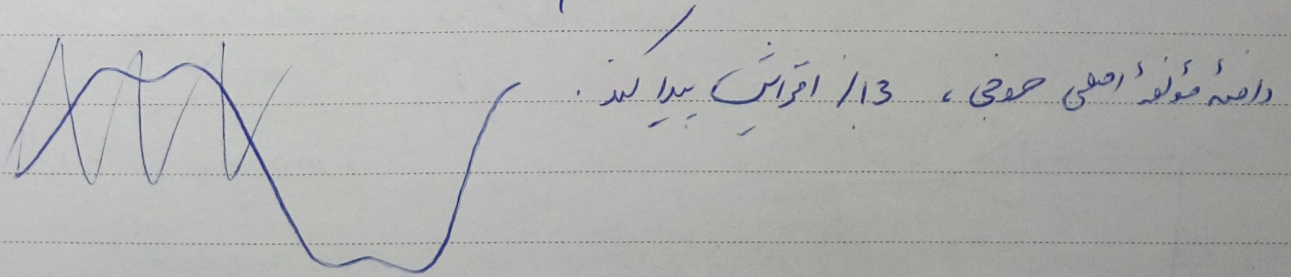 دامنهٔ مؤلفهٔ اصلی خروجی، 13٪ افزایش پیدا کند.